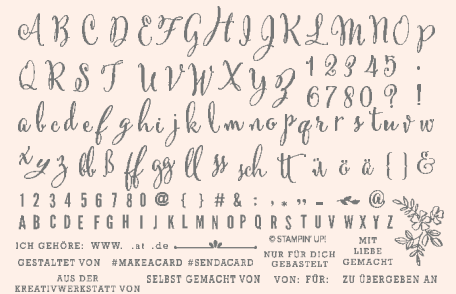 A B C D E F G H I J K L M N O P
Q R S T U V W X Y Z 1 2 3 4 5 .
6 7 8 0 ? !
a b c d e f g h i j k l m n o p q r s t u v w
x y z bb ß ff gg ll ss sch tt ü ö ä { } &
1 2 3 4 5 6 7 8 0 @ { } # & : , * „ – @
A B C D E F G H I J K L M N O P Q R S T U V W X Y Z
ICH GEHÖRE: WWW. .at .de
© STAMPIN' UP!
GESTALTET VON #MAKEACARD #SENDACARD
NUR FÜR DICH
GEBASTELT
MIT
LIEBE
GEMACHT
AUS DER
KREATIVWERKSTATT VON
SELBST GEMACHT VON
VON: FÜR:
ZU ÜBERGEBEN AN